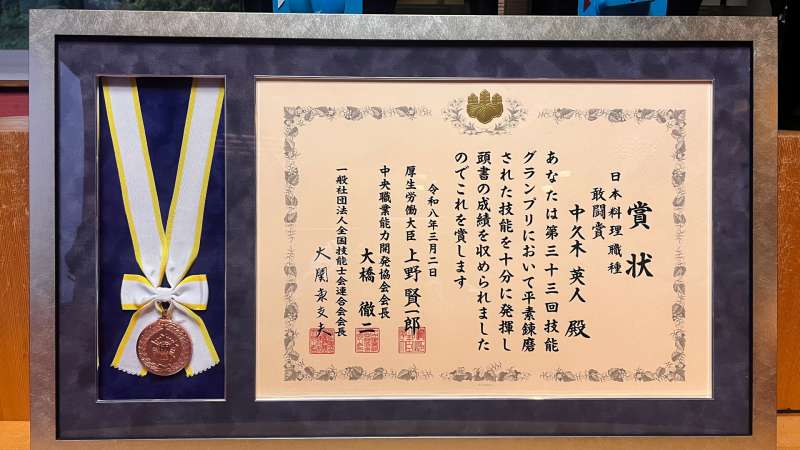 賞状
日本料理 職種
敢闘賞
中久木 英人 殿
あなたは第三十三回技能
グランプリにおいて平素錬磨
された技能を十分に発揮し
頭書の成績を収められました
のでこれを賞します
令和八年三月二日
厚生労働大臣 上野 賢一郎
中央職業能力開発協会会長
大橋 徹二
一般社団法人全国技能士会連合会会長